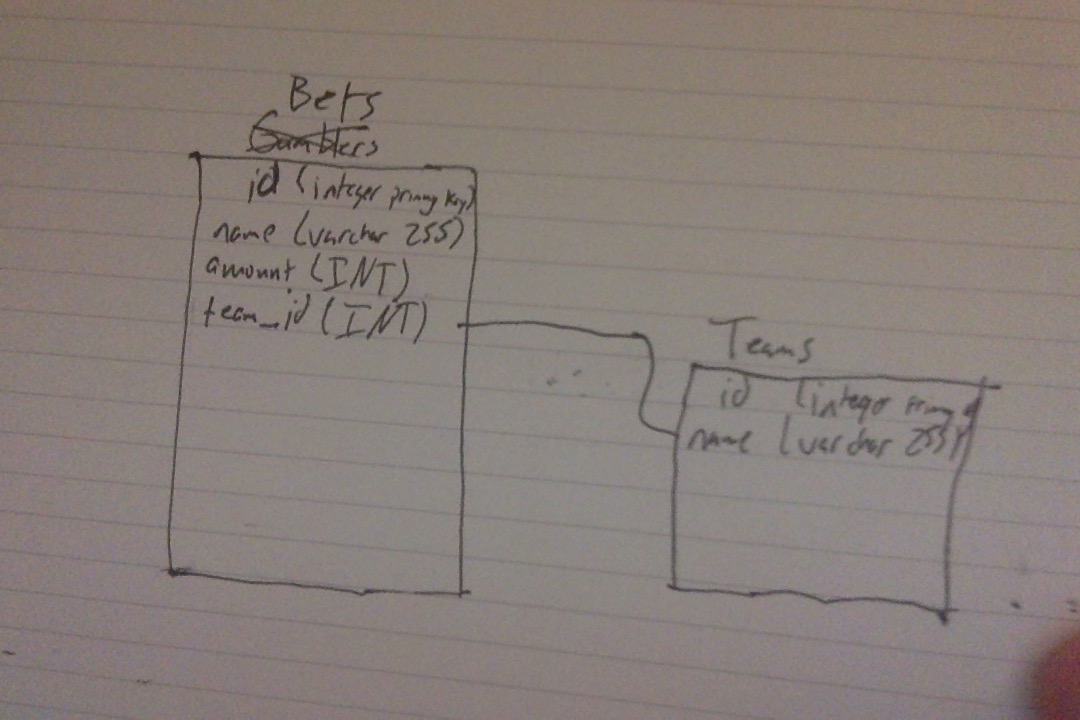 Bets
Gamblers
id (integer primary key)
name (varchar 255)
amount (INT)
team_id (INT)
Teams
id (integer primary
name (varchar 255)